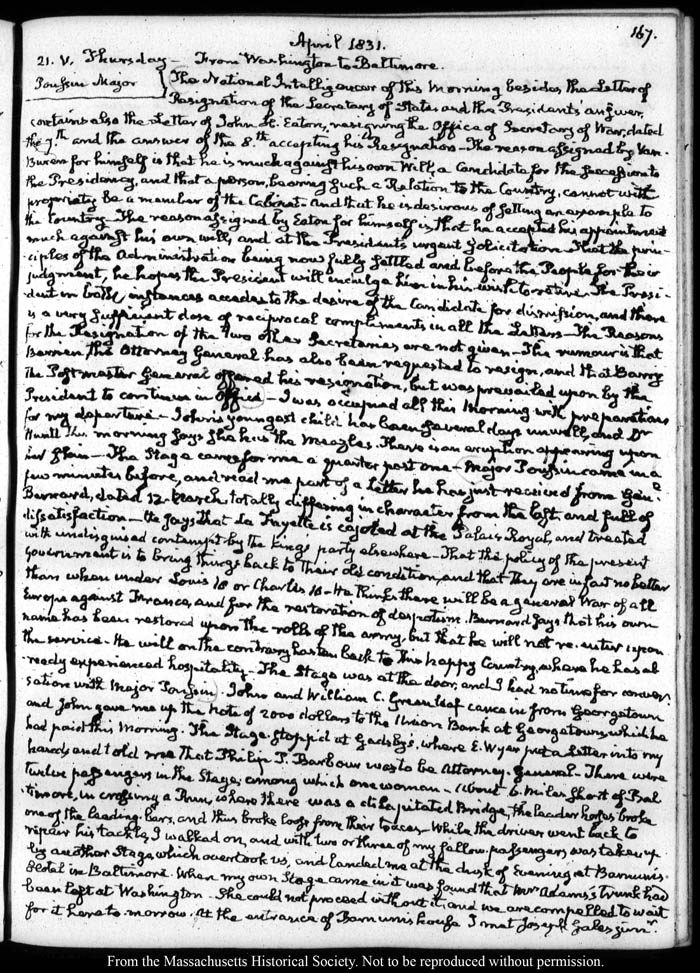 April 1831.
167.
21. V. Thursday — From Washington to Baltimore.
Poussin Major
The National Intelligencer of this Morning besides the Letter of
Resignation of the Secretary of State and the Presidents' answer,
contains also the Letter of John H. Eaton, resigning the Office of Secretary of War, dated
the 7.th and the answer of the 8.th accepting his Resignation. The reason assigned by Van
Buren for himself is that he is much against his own Will, a Candidate for the succession to
the Presidency, and that a person, bearing such a Relation to the Country, cannot with
propriety be a member of the Cabinet. And that he is desirous of setting an example to
the Country. The reason assigned by Eaton for himself is that he accepted his appointment
much against his own will, and at the Presidents urgent solicitation. That the prin-
ciples of the Administration being now fully settled and before the People for their
judgment, he hopes the President will indulge him in his wish to retire. The Presi-
dent in both instances accedes to the desire of the Candidate for dismission, and there
is a very sufficient dose of reciprocal compliments in all the Letters — The Reasons
for the Resignation of the two other Secretaries are not given — The rumour is that
Berrien the Attorney General has also been requested to resign, and that Barry
the Post master General offered his resignation, but was prevailed upon by the
President to continue in Office — I was occupied all this Morning with preparations
for my departure — John's youngest child has been several days unwell, and Dr
Huntt this morning says she has the Meazles. There is an eruption appearing upon
her skin — The Stage came for me a quarter past one — Major Poussin came in a
few minutes before, and read me part of a Letter he has just received from Gen.l
Bernard, dated 12 March totally differing in character from the last, and full of
dissatisfaction — He says that La Fayette is cajoled at the Palais Royal, and treated
with undisguised contempt by the King's party elsewhere — That the policy of the present
Government is to bring things back to their old condition, and that they are in fact no better
than when under Louis 18 or Charles 10 — He thinks there will be a general War of all
Europe against France, and for the restoration of despotism. Bernard says that his own
name has been restored upon the rolls of the army, but that he will not re-enter upon
the service. He will on the contrary hasten back to this happy Country, where he has al-
ready experienced hospitality — The Stage was at the door, and I had no time for conver-
sation with Major Poussin. John and William C. Greenleaf came in from Georgetown
and John gave me up the Note of 2000 dollars to the Union Bank at Georgetown, which he
had paid this Morning. The Stage stopp'd at Gadsby's, where E. Wyer put a Letter into my
hands and told me that Philip P. Barbour was to be Attorney-General — There were
twelve passengers in the Stage, among which one woman — About 6 Miles short of Bal-
timore, in crossing a Run, where there was a dilapidated Bridge, the leader horses broke
one of the leading bars, and thus broke loose from their traces — While the driver went back to
repair his tackle, I walked on, and with two or three of my fellow passengers was taken up
by another Stage which overtook us, and landed me at the dusk of Evening at Barnum's
Hotel in Baltimore. When my own Stage came in it was found that Mrs Adams's trunk had
been left at Washington — She could not proceed without it, and we are compelled to wait
for it here to morrow. At the entrance of Barnum's house I met Joseph Gales junr.
From the Massachusetts Historical Society. Not to be reproduced without permission.